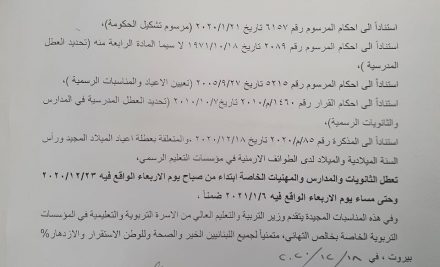 استناداً الى احكام المرسوم رقم ٦١٥٧ تاريخ ٢٠٢٠/١/٢١ (مرسوم تشكيل الحكومة)،
استناداً الى احكام المرسوم رقم ٢٠٨٩ تاريخ ١٩٧١/١٠/١٨ لا سيما المادة الرابعة منه (تحديد العطل
المدرسية )،
استناداً الى احكام المرسوم رقم ٥٢١٥ تاريخ ٢٠٠٥/٩/٢٧ (تعيين الاعياد والمناسبات الرسمية )،
استناداً الى احكام القرار رقم ١٤٦٠/م/٢٠١٠ تاريخ ٢٠١٠/١٠/٧ (تحديد العطل المدرسية في المدارس
والثانويات الرسمية)،
استناداً الى المذكرة رقم ٨٥/م/٢٠٢٠ تاريخ ٢٠٢٠/١٢/١٨ -والمتعلقة بعطلة اعياد الميلاد المجيد ورأس
السنة الميلادية والميلاد لدى الطوائف الارمنية في مؤسسات التعليم الرسمي،
تعطل الثانويات والمدارس والمهنيات الخاصة ابتداء من صباح يوم الاربعاء الواقع فيه ٢٠٢٠/١٢/٢٣
وحتى مساء يوم الاربعاء الواقع فيه ٢٠٢١/١/٦ ضمناً .
وفي هذه المناسبات المجيدة يتقدم وزير التربية والتعليم العالي من الاسرة التربوية والتعليمية في المؤسسات
التربوية الخاصة بخالص التهاني، متمنياً لجميع اللبنانيين الخير والصحة وللوطن الاستقرار والازدهار%
بيروت ، في ٢٠٢٠/١٢/١٨